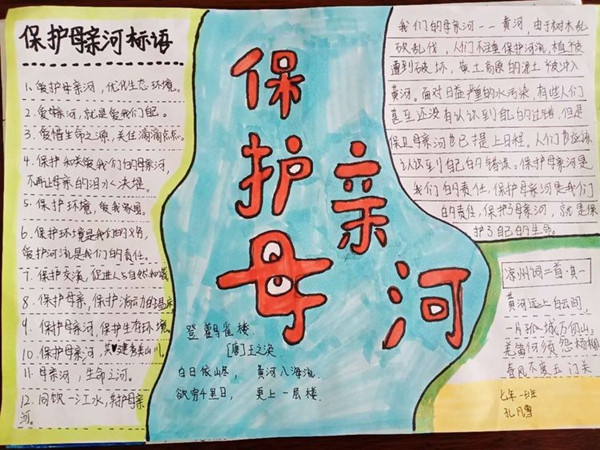 保护母亲河标语
1. 爱护母亲河，优化生态环境。
2. 爱母亲河，就是爱我们自己。
3. 爱惜生命之源，关注滴滴点点。
4. 保护和关爱我们的母亲河，
不再让母亲的泪水决堤。
5. 保护环境，爱我家园。
6. 保护环境是我们的义务，
爱护河流是我们的责任。
7. 保护交流，促进人与自然和谐
8. 保护母亲，保护流动的温床
9. 保护母亲河，保护生存环境。
10. 保护母亲河，共建秀山川。
11. 母亲河，生命之河。
12. 同饮一江水，共护母亲
河。
保护母亲河
登鹳雀楼
[唐]王之涣
白日依山尽，黄河入海流
欲穷千里目，更上一层楼
我们的母亲河--黄河，由于树木乱
砍乱伐，人们不注意保护河流，植被
遭到破坏，黄土高原的泥土被冲入
黄河。面对日益严重的水污染，有些人们
甚至还没有认识到自己的过错，但是
保卫母亲河已提上日程。人们应该
认识到自己的错误。保护母亲河是
我们的责任，保护母亲河是我们
的责任，保护了母亲河，就是保
护了自己的生命。
凉州词二首·其一
黄河远上白云间，
一片孤城万仞山。
羌笛何须怨杨柳
春风不度玉门关
七年一班